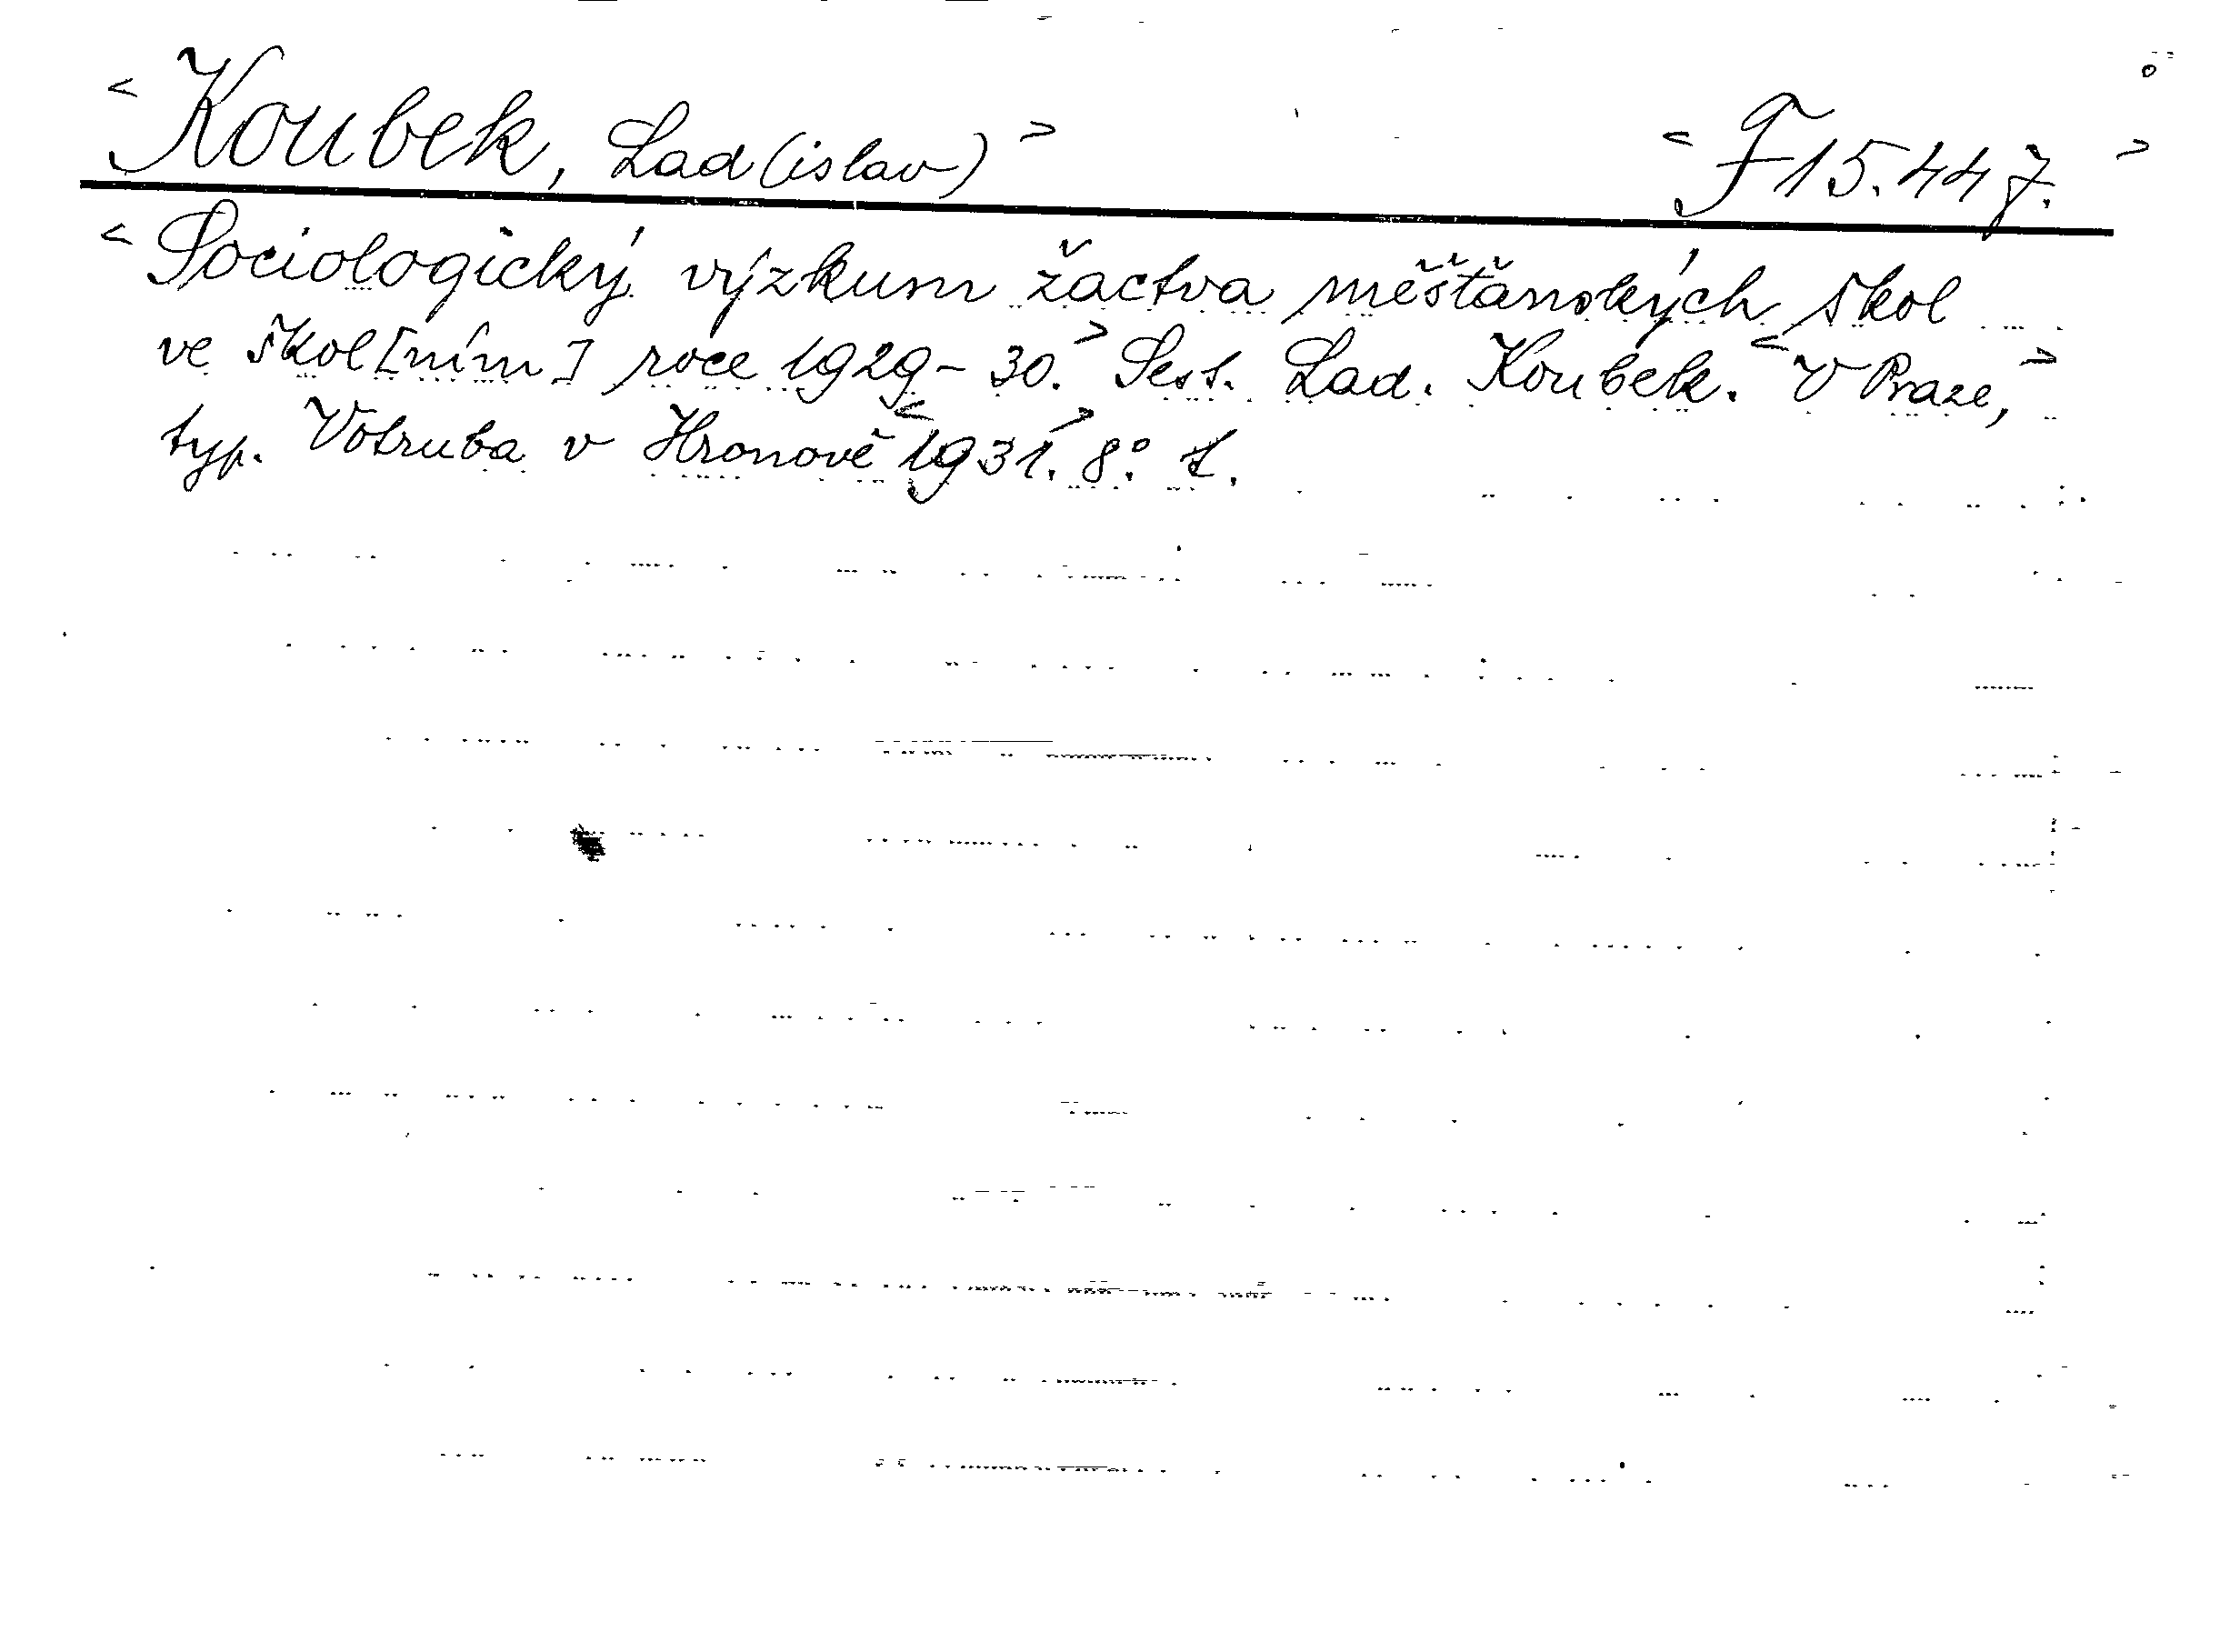 <Koubek, Lad(islav)> <F 15.447.>
<Sociologický výzkum žactva měšťanských škol
ve škol[ním] roce 1929-30.> Sest. Lad. Koubek. <V Praze,>
typ. Votruba v Hronově <1931.> 8°.